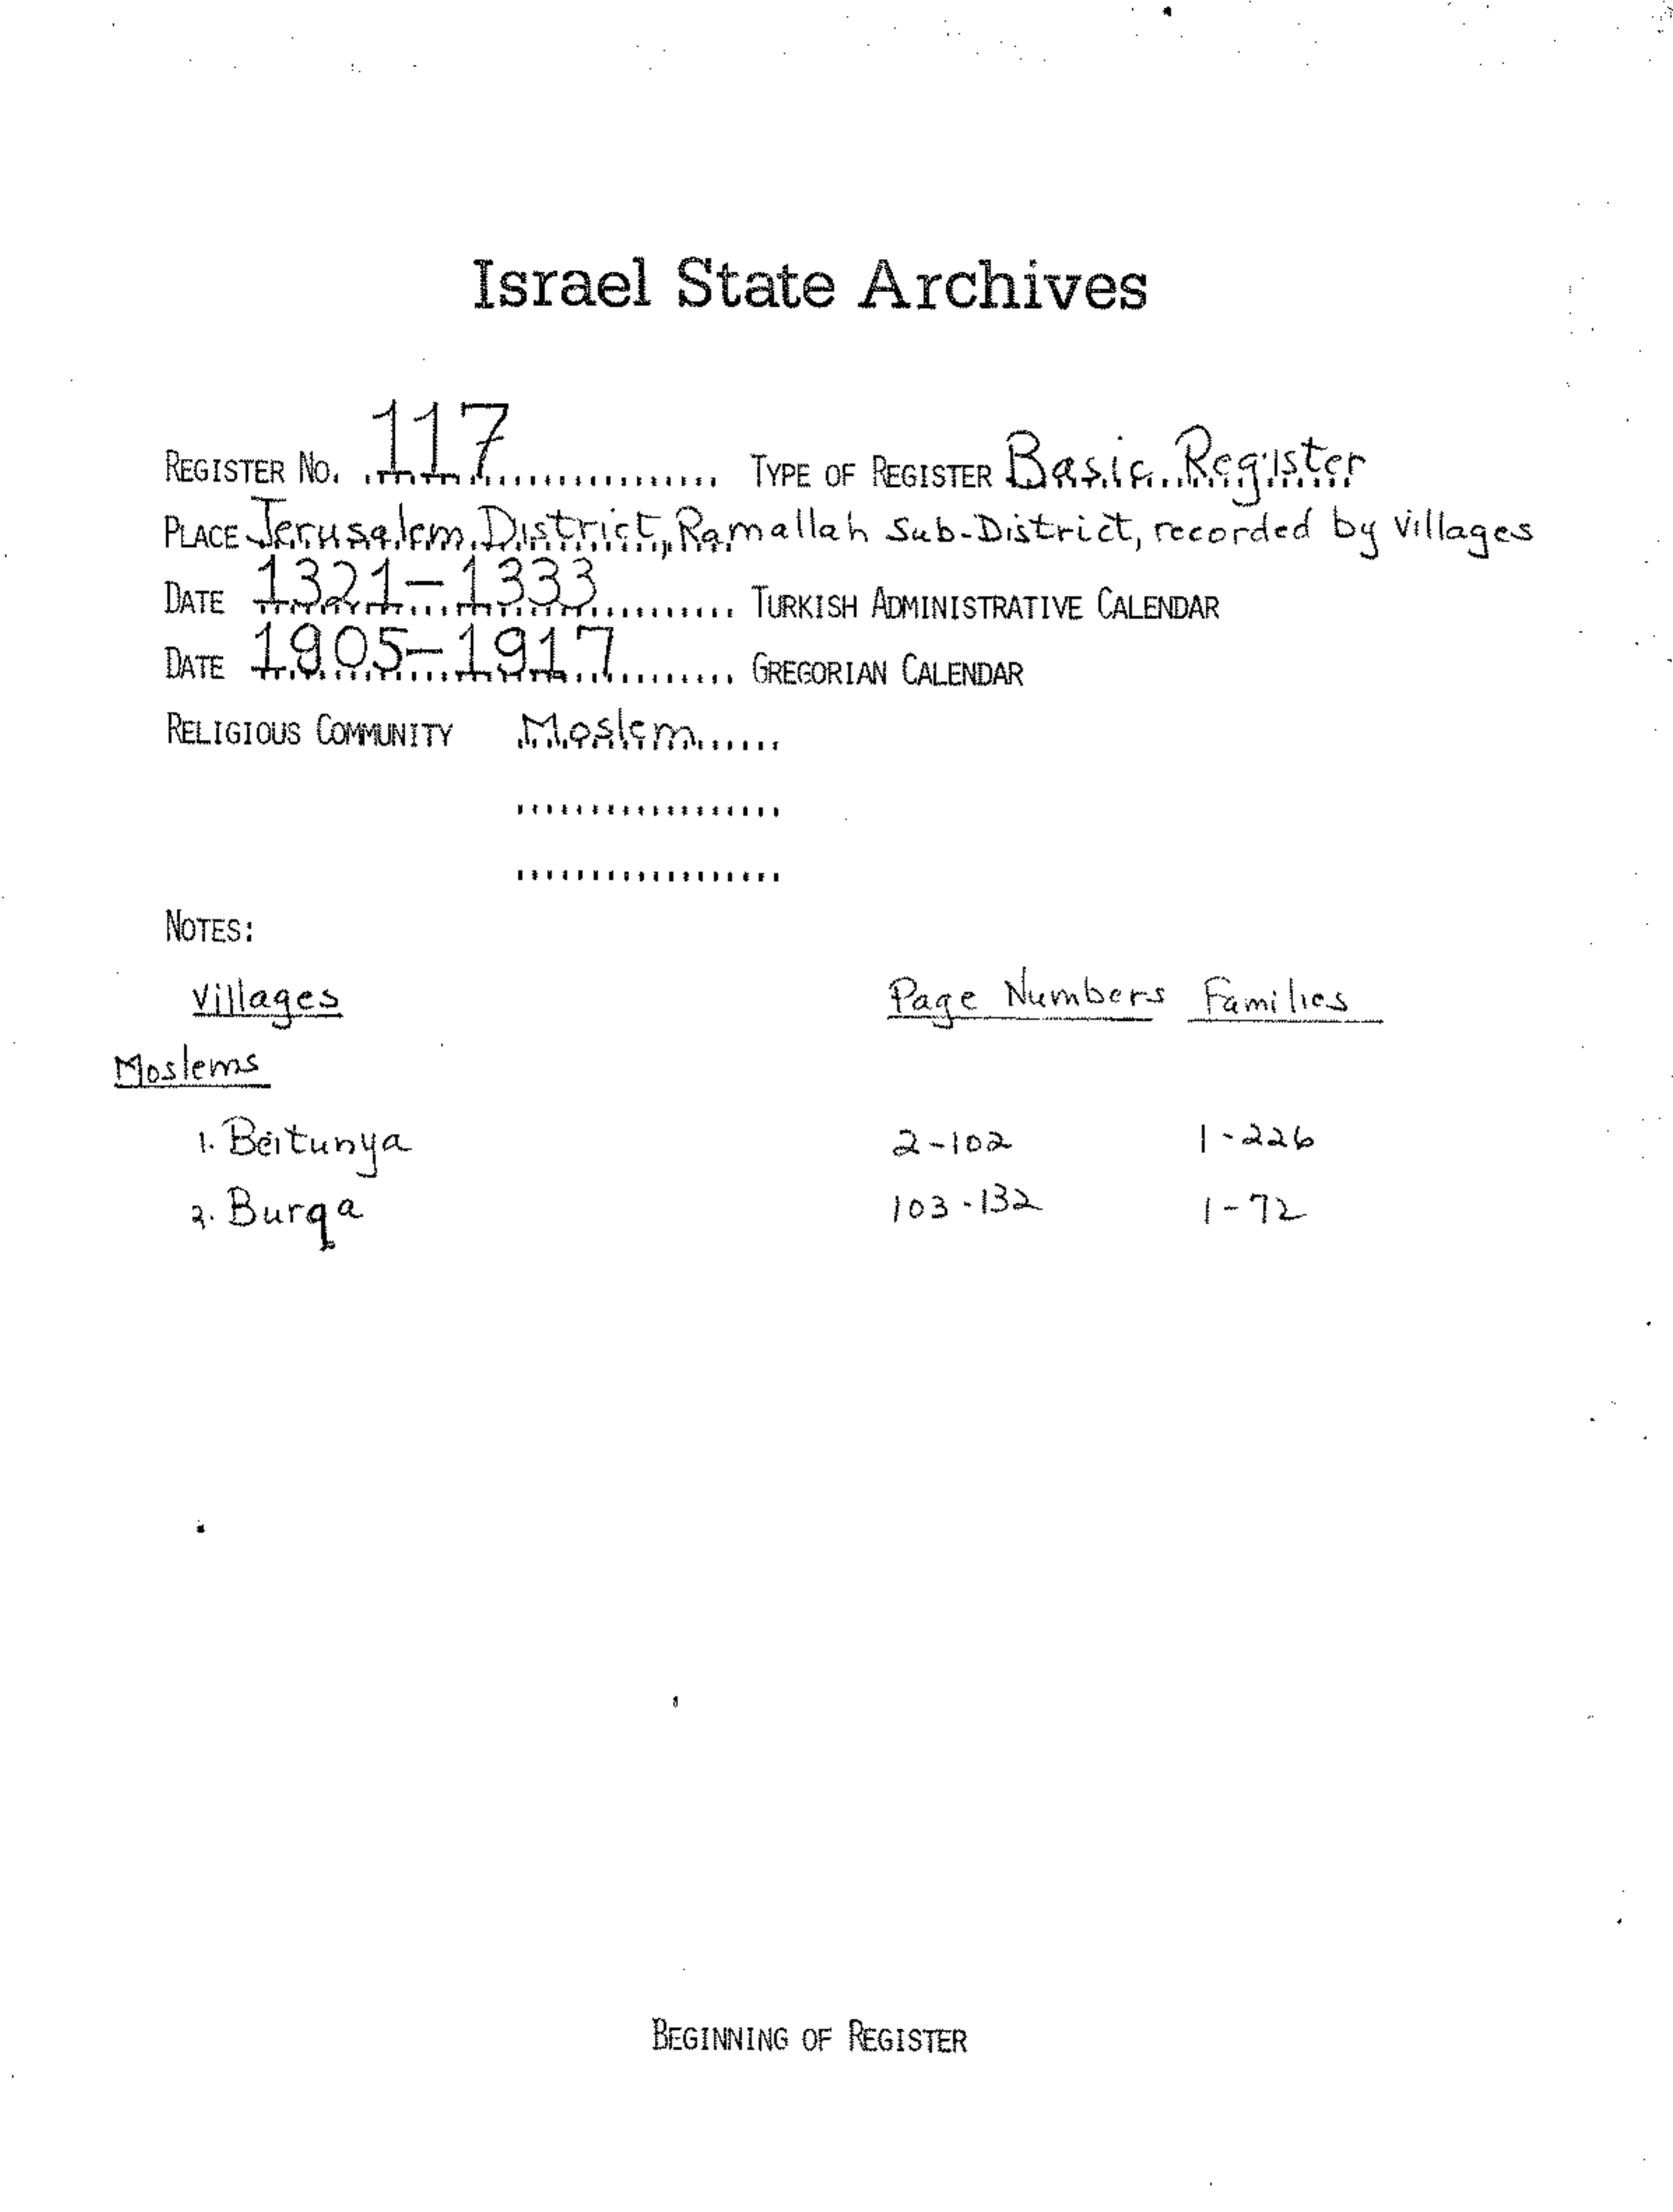 Israel State Archives
REGISTER No. 117 TYPE OF REGISTER Basic Register
PLACE Jerusalem District, Ramallah Sub-District, recorded by villages
DATE 1321-1333 TURKISH ADMINISTRATIVE CALENDAR
DATE 1905-1917 GREGORIAN CALENDAR
RELIGIOUS COMMUNITY Moslem
NOTES:
Villages Page Numbers Families
Moslems
1. Beitunya 2-102 1-226
2. Burqa 103-132 1-72
BEGINNING OF REGISTER